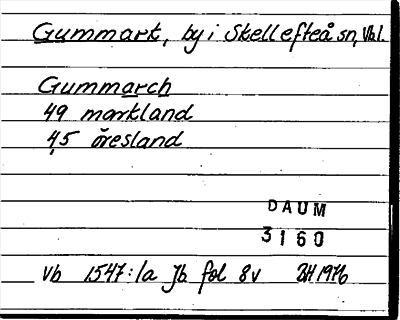 Gummark, by i Skellefteå sn, Vbl.
Gummarch
49 markland
4,5 öresland
DAUM
3160
Vb 1547:1a Jb fol 8v 1976